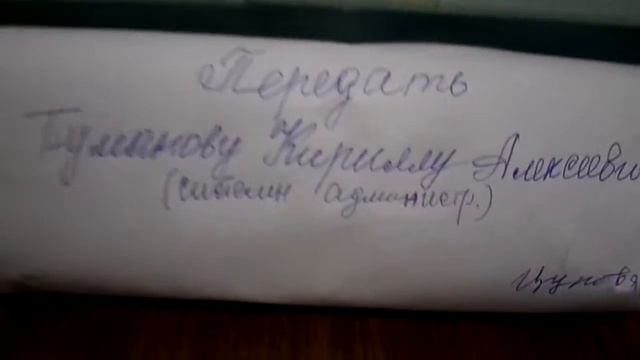 Передать
Туманову Кириллу Алексеевич
(системн администр.)